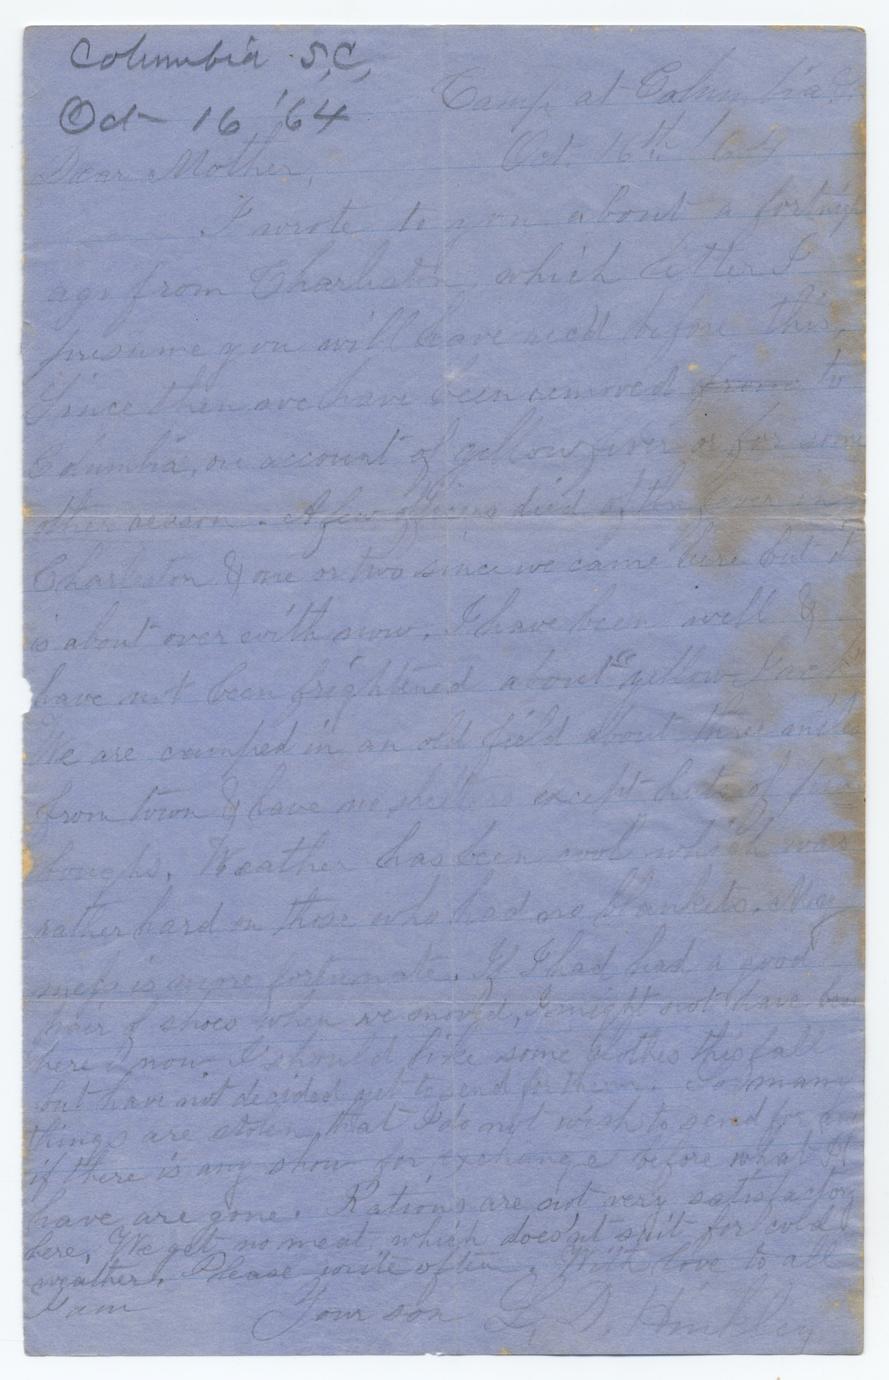 Columbia S,C,
Oct 16 '64
Camp at Columbia
Oct. 16th '64
Dear Mother,
I wrote to you about a fortnigh
ago from Charleston, which letter I
presume you will have rec'd before this.
Since then we have been removed from to
Columbia, on account of yellow fever or for some
other reason. A few officers died of the fever in
Charleston & one or two since we came here but it
is about over with now. I have been well &
have not been frightened about "yellow Jack"
We are camped in an old field about three miles
from town & have no shelters except huts of pine
boughs. Weather has been cool which was
rather hard on those who had no blankets. My
mess is more fortunate. If I had had a good
pair of shoes when we moved, I might not have been
here now. I should like some clothes this fall
but have not decided yet to send for them. So many
things are stolen that I do not wish to send for any
if there is any show for exchange before what I
have are gone. Rations are not very satisfactory
here. We get no meat which does'nt suit for cold
weather. Please write often. With love to all
I am
Your son L. D. Hinkley